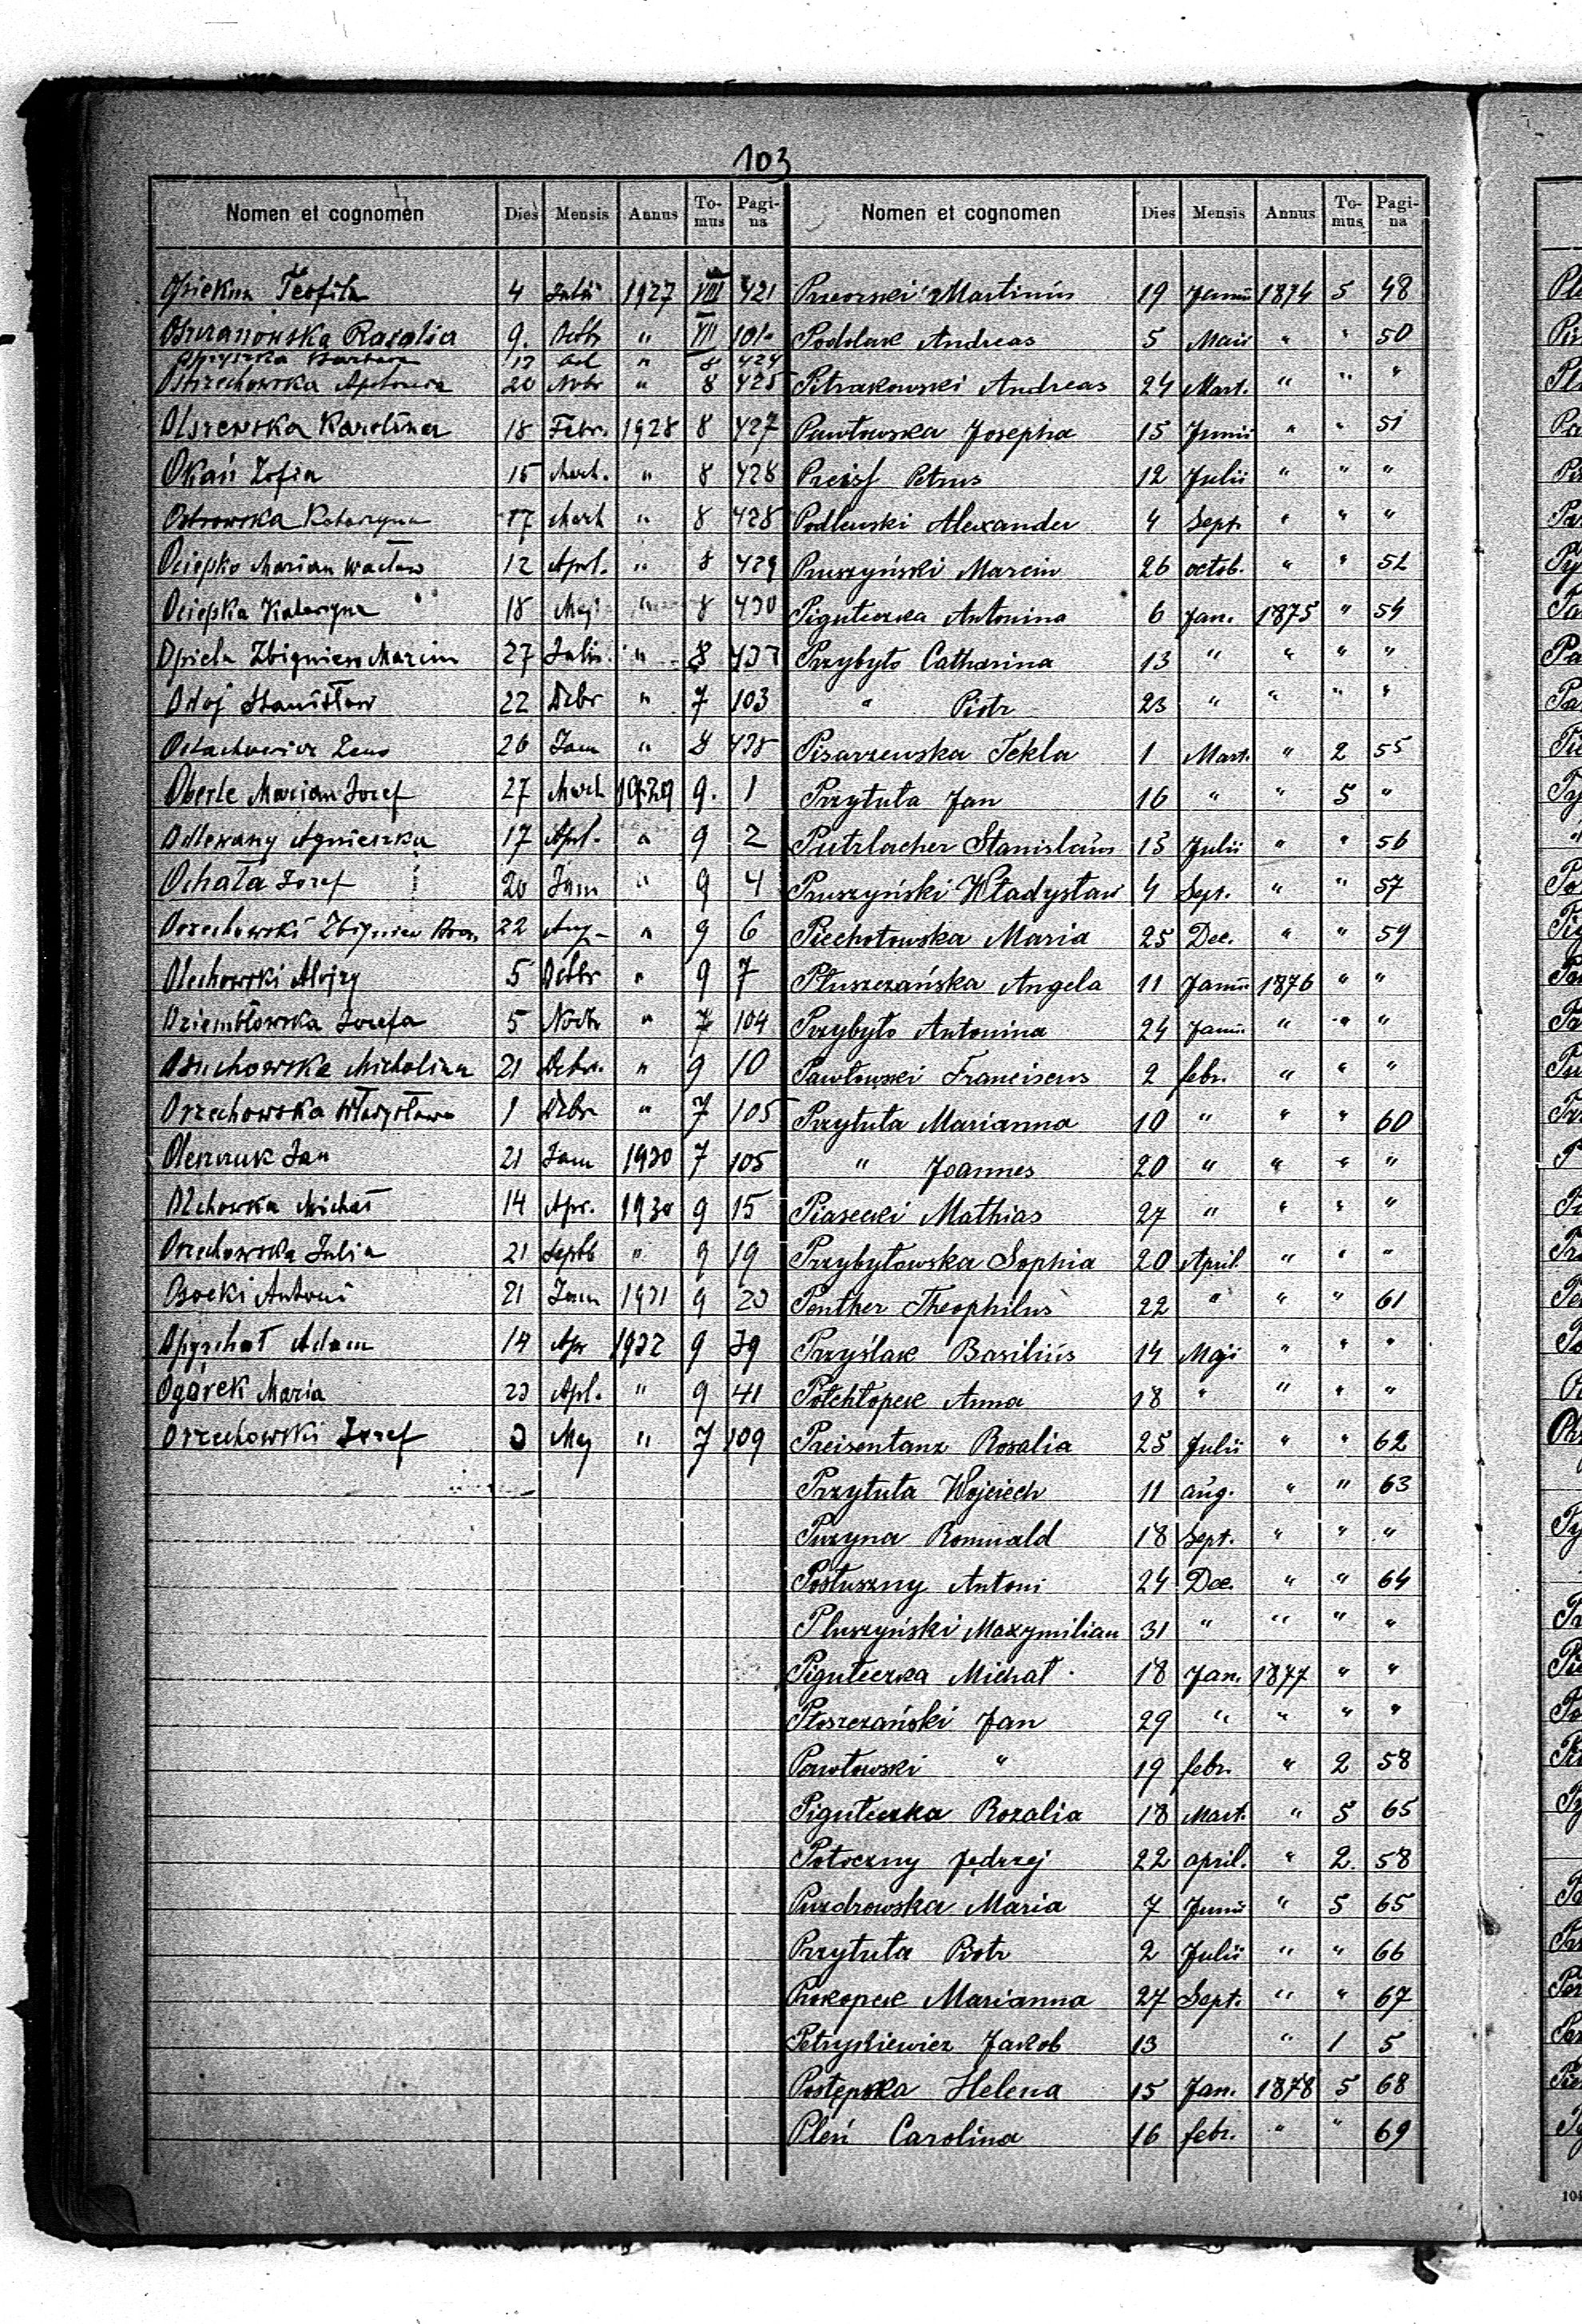 103
Nomen et cognomen Dies Mensis Annus To-mus Pagi-na
Opiekun Teofila 4 Julii 1927 VIII 421
Rosalia 9. Octb " VII
Barbara " 8 424
Ostrzechowska 20 Nvbr " 8 425
Olszewska Karolina 18 Febr. 1928 8 427
Okoń Zofia 15 Mart. " 8 428
Ostrowska Katarzyna 17 Mart " 8 428
Ociepko Marian Wacław 12 Aprl. " 8 429
Ociepka Katarzyna 18 Maj " 8 430
Opiela Zbigniew Marcin 27 Julii " 8 433
Ostoj Stanisław 22 Dcbr " 7 103
26 Jan " 8 438
Oberle Marian Józef 27 Mart 1929 9. 1
Odlewany Agnieszka 17 Aprl. " 9 2
Ochała Józef 20 Jan " 9 4
Orzechowski Zbigniew 22 Aug. " 9 6
Olechowski Alojzy 5 Octbr " 9 7
Dziembłowska Józefa 5 Novbr " 7 104
Osuchowska Michalina 21 Dcbr. " 9 10
Orzechowska Władysława 1 Dcbr " 7 105
Oleszczuk Jan 21 Jan 1930 7 105
Olchowka Michał 14 Apr. 1930 9 15
Orzechowska Julia 21 Septb " 9 19
Osocki Antoni 21 Jan 1931 9 23
Opyrchał Adam 14 Apr 1932 9 39
Ogarek Maria 23 Apl. " 9 41
Orzechowski Józef 3 Maj " 7 109
Nomen et cognomen Dies Mensis Annus To-mus Pagi-na
Przeorski Martinus 19 Januii 1874 5 48
Podolak Andreas 5 Maii " " 50
Petrakowski Andreas 24 Mart. " " "
Pawłowska Josepha 15 Junii " " 51
Preiss Petrus 12 Julii " " "
Podlewski Alexander 4 Sept. " " "
Pruszyński Marcin 26 octob. " " 52
Piguteczka Antonina 6 Jan. 1875 " 54
Przybyło Catharina 13 " " " "
" Piotr 23 " " " "
Pisarzewska Tekla 1 Mart. " 2 55
Przytuła Jan 16 " " 5 "
Putzlacher Stanislaus 15 Julii " " 56
Pruszyński Władysław 4 Sept. " " 57
Piechotowska Maria 25 Dec. " " 59
Płuszczańska Angela 11 Januii 1876 " "
Przybyło Antonina 24 Januii " " "
Pawłowski Franciscus 2 febr. " " "
Przytuła Marianna 10 " " " 60
" Joannes 20 " " " "
Piasecki Mathias 27 " " " "
Przybyłowska Sophia 20 April. " " "
Penther Theophilus 22 " " " 61
Przyślak Basilius 14 Maji " " "
Półchłopek Anna 18 " " " "
Preisentanz Rosalia 25 Julii " " 62
Przytuła Wojciech 11 aug. " " 63
Puzyna Romuald 18 Sept. " " "
Postuszny Antoni 24 Dec. " " 64
Pluszyński Maxymilian 31 " " " "
Piguteczka Michał 18 Jan. 1877 " "
Płoszczański Jan 29 " " " "
Pawłowski " 19 febr. " 2 58
Piguteczka Rozalia 18 Mart. " 5 65
Potoczny Jędrzej 22 april. " 2. 58
Puzdrowska Maria 7 Junii " 5 65
Przytuła Piotr 2 Julii " " 66
Prokopek Marianna 27 Sept. " " 67
Petrykiewicz Jakob 13 " 1 5
Postępska Helena 15 Jan. 1878 5 68
Pleń Carolina 16 febr. " " 69